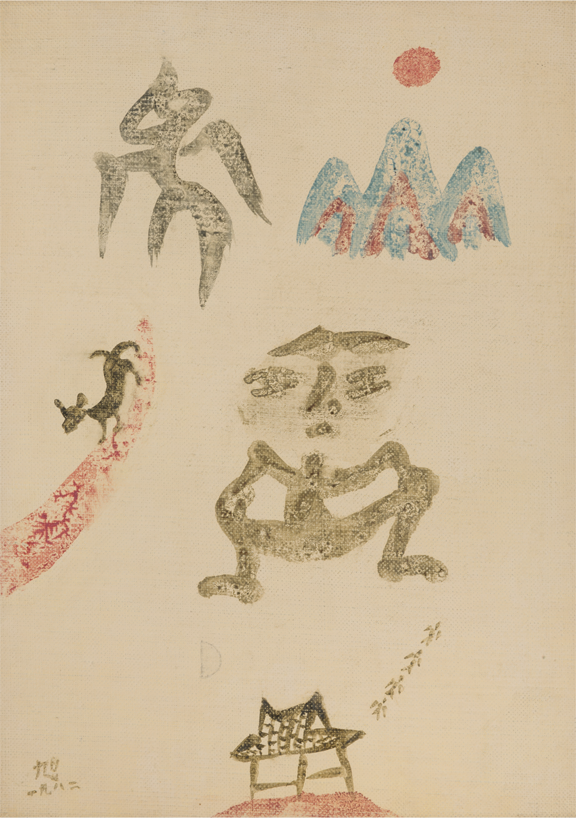 旭
一九八二